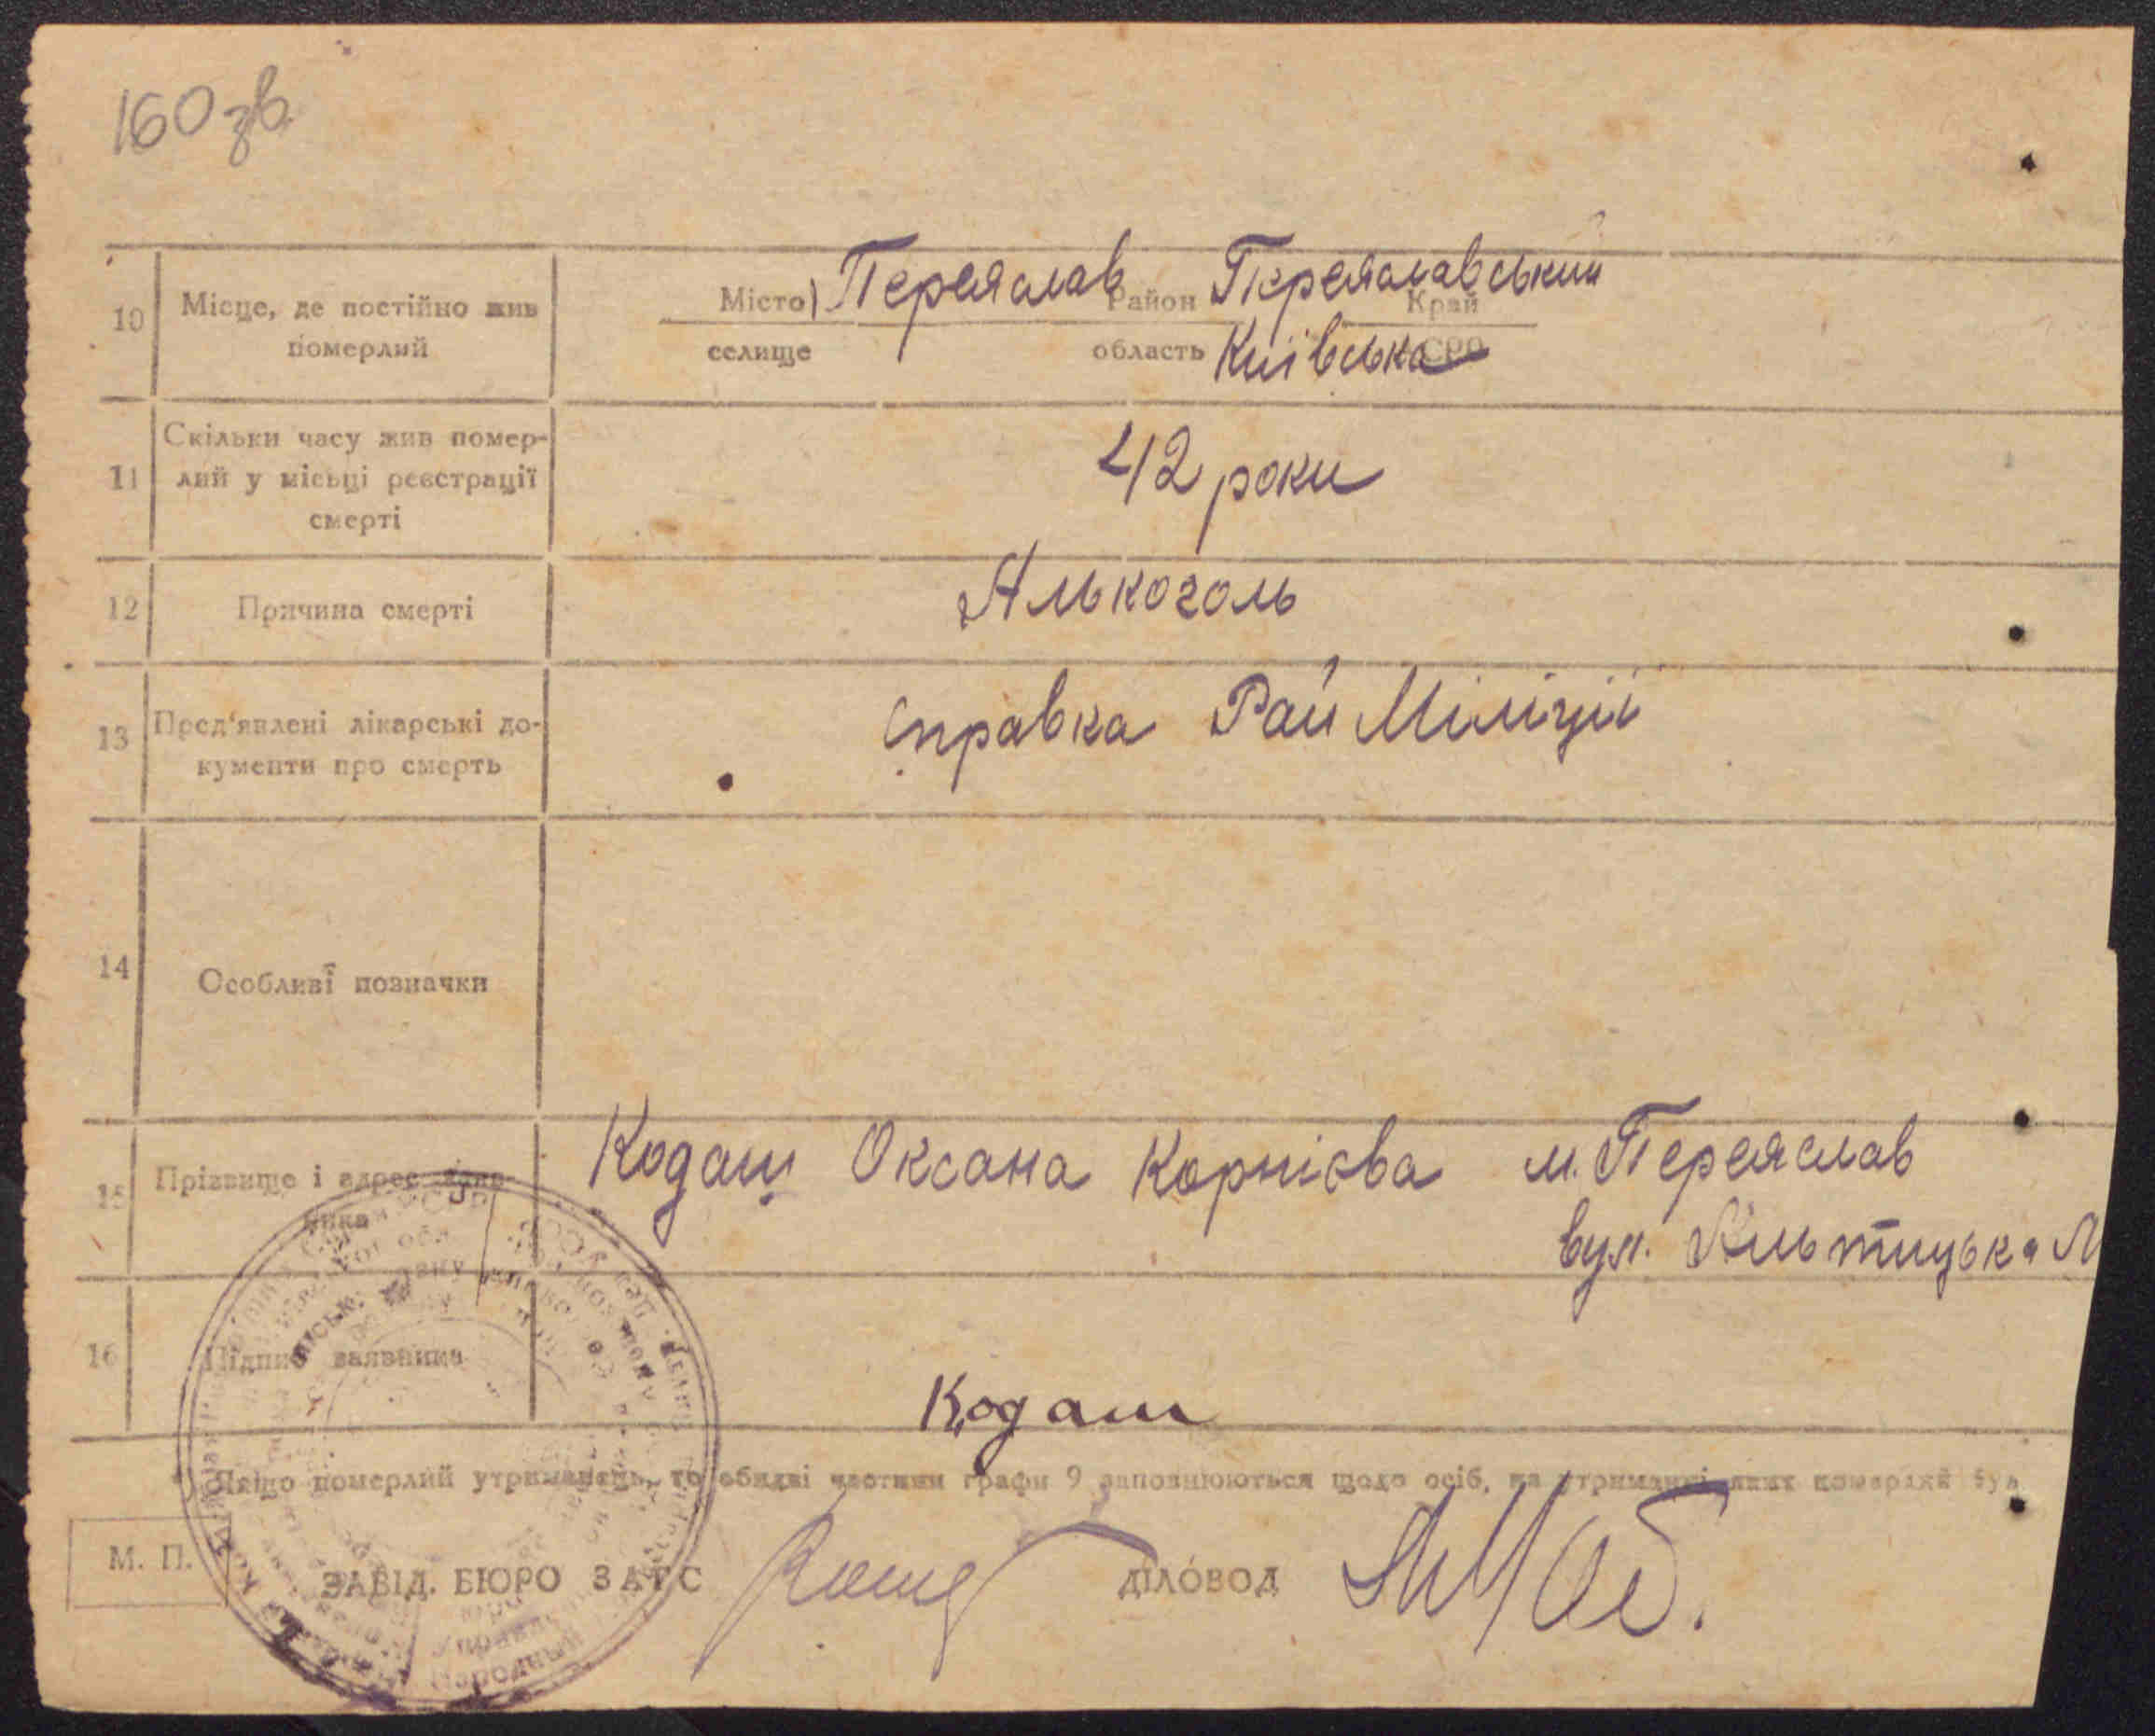 160 зв.
10 Місце, де постійно жив померлий
Місто) Переяслав Район Переяславський Край
селище область Київська СРО
11 Скільки часу жив помер-
лий у місьці реєстрації
смерті
42 роки
12 Причина смерті Алькоголь
13 Пред'явлені лікарські до-
кументи про смерть
справка Рай Міліції
14 Особливі позначки
15 Прізвище і адрес заяв-
ника
Кодаш Оксана Корнієва м. Переяслав
вул. Альтицька
16 Підпис заявника
Кодаш
*) Якщо померлий утриманець, то обидві частини графи 9 заповнюються щодо осіб, на утриманні яких померлий був
М. П.
ЗАВІД. БЮРО ЗАГС ДІЛОВОД